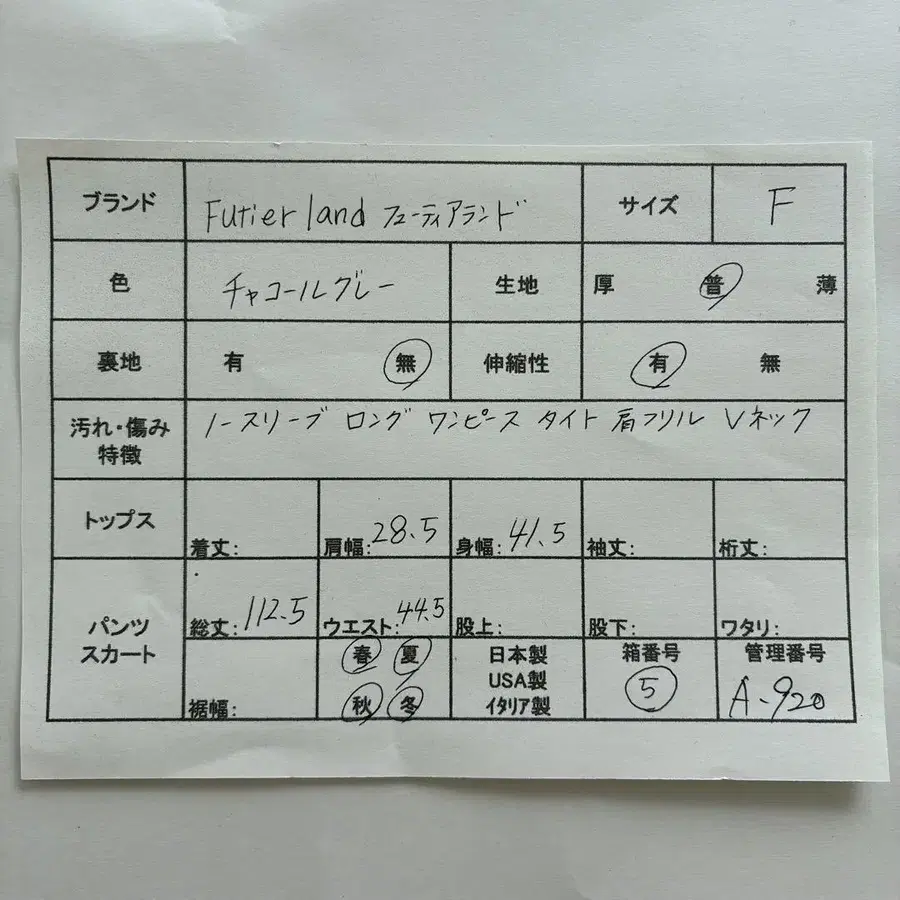 ブランド Futier land フューティアランド サイズ F
色 チャコールグレー 生地 厚 普 薄
裏地 有 無 伸縮性 有 無
汚れ・傷み
特徴
ノースリーブ ロング ワンピース タイト 肩フリル Vネック
トップス 着丈: 肩幅:28.5 身幅:41.5 袖丈: 裄丈:
パンツ
スカート
総丈:112.5 ウエスト:44.5 股上: 股下: ワタリ:
裾幅:
春 夏
秋 冬
日本製
USA製
イタリア製
箱番号
5
管理番号
A-920